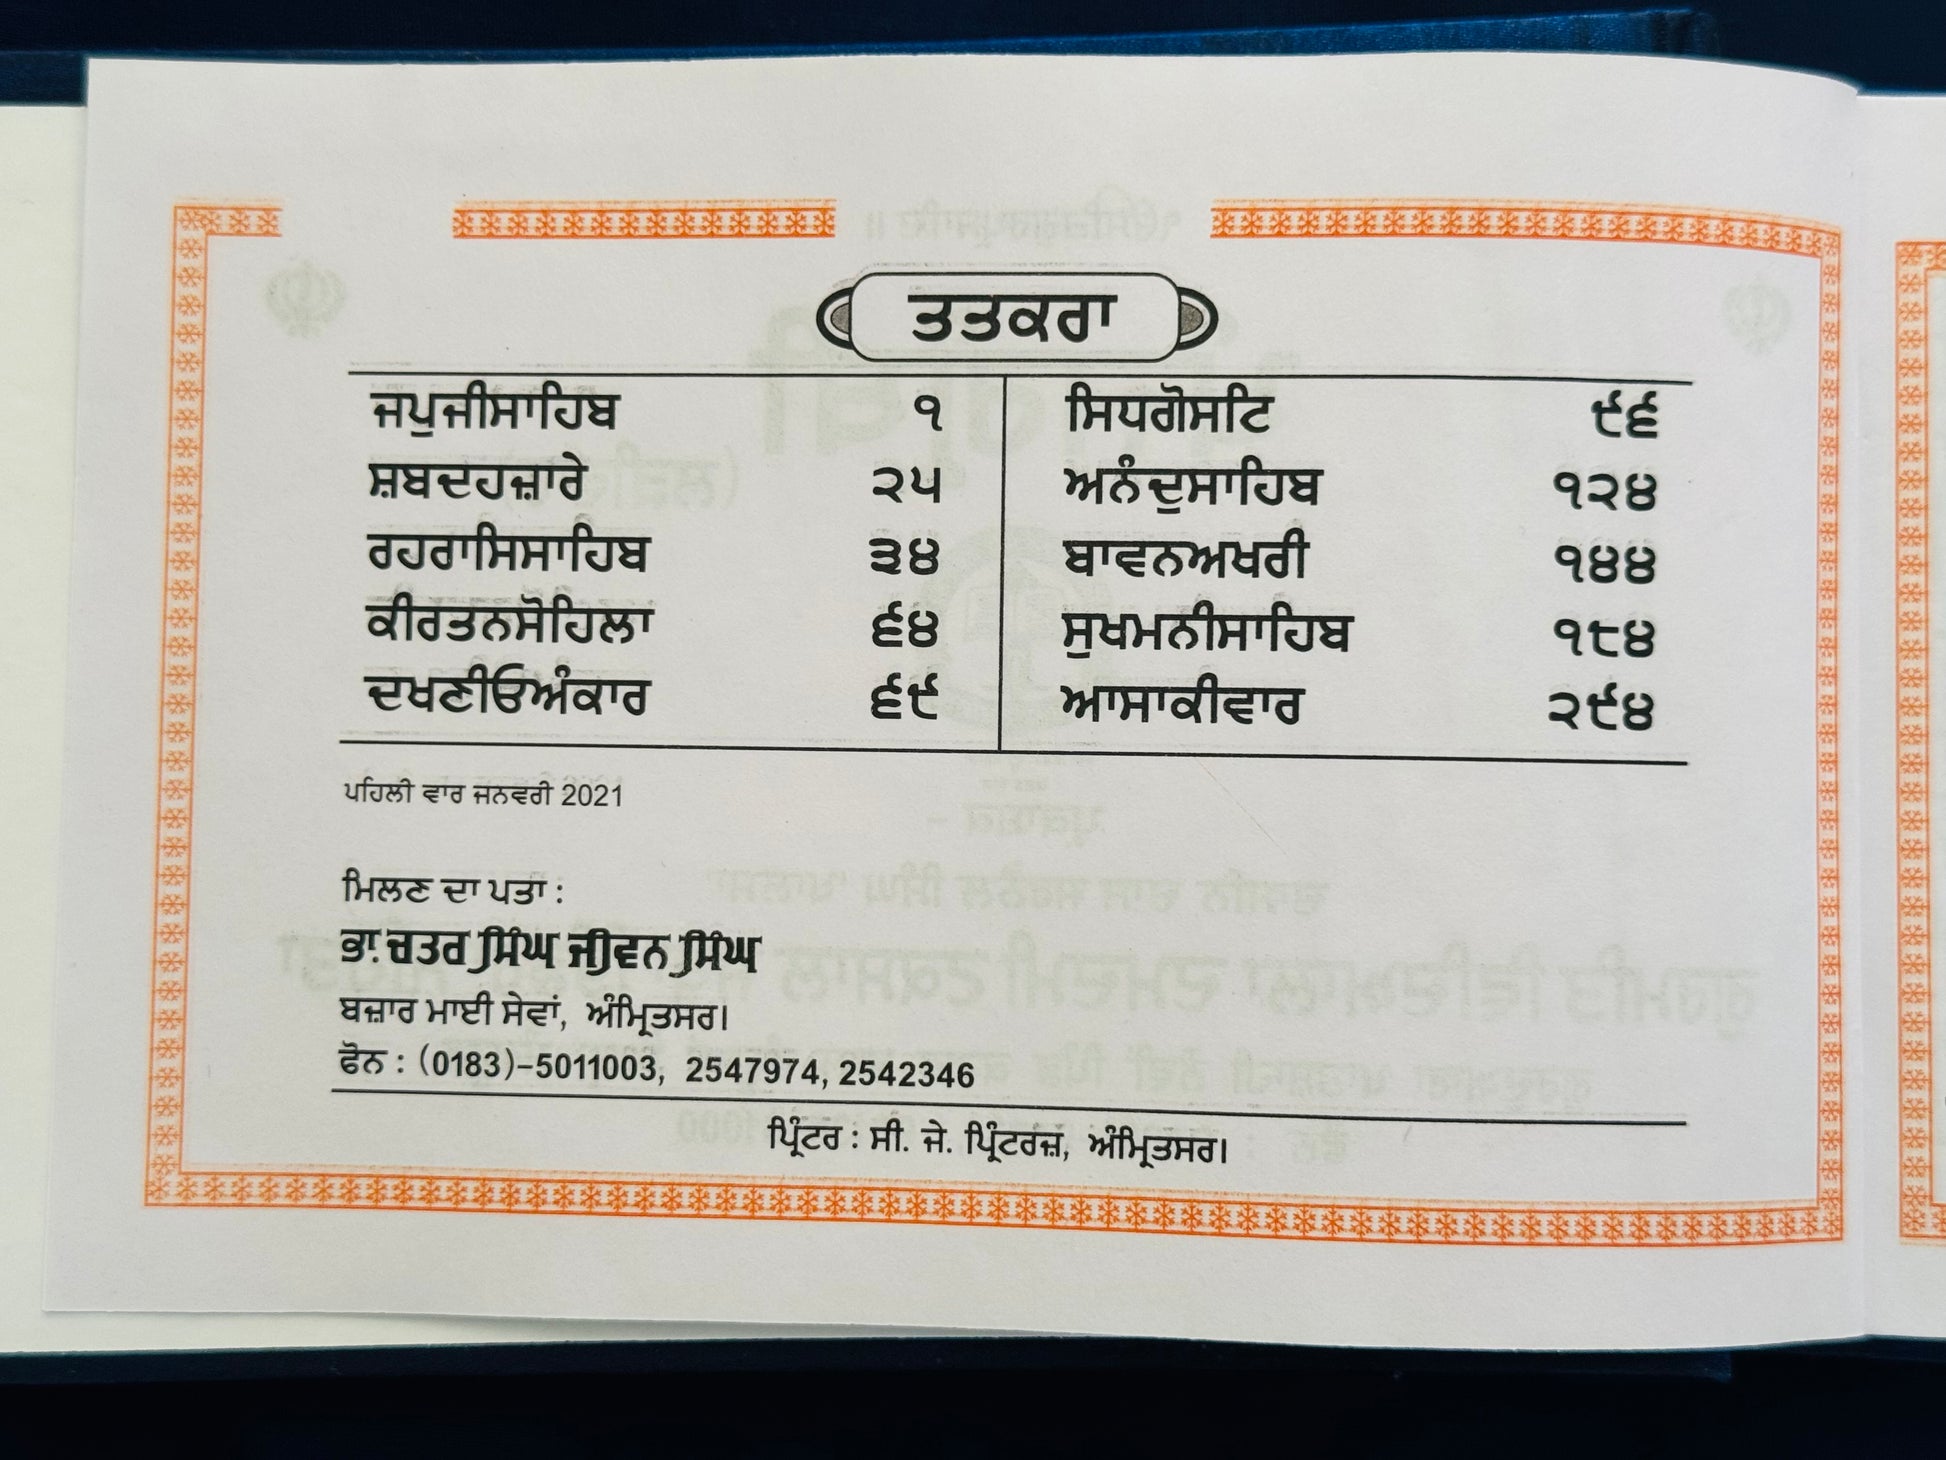 ਤਤਕਰਾ
ਜਪੁਜੀਸਾਹਿਬ ੧
ਸ਼ਬਦਹਜ਼ਾਰੇ ੨੫
ਰਹਰਾਸਿਸਾਹਿਬ ੩੪
ਕੀਰਤਨਸੋਹਿਲਾ ੬੪
ਦਖਣੀਓਅੰਕਾਰ ੬੯
ਸਿਧਗੋਸਟਿ ੯੬
ਅਨੰਦੁਸਾਹਿਬ ੧੨੪
ਬਾਵਨਅਖਰੀ ੧੪੪
ਸੁਖਮਨੀਸਾਹਿਬ ੧੮੪
ਆਸਾਕੀਵਾਰ ੨੯੪
ਪਹਿਲੀ ਵਾਰ ਜਨਵਰੀ 2021
ਮਿਲਣ ਦਾ ਪਤਾ :
ਭਾ. ਚਤਰ ਸਿੰਘ ਜੀਵਨ ਸਿੰਘ
ਬਜ਼ਾਰ ਮਾਈ ਸੇਵਾਂ, ਅੰਮ੍ਰਿਤਸਰ।
ਫੋਨ : (0183)-5011003, 2547974, 2542346
ਪ੍ਰਿੰਟਰ : ਸੀ. ਜੇ. ਪ੍ਰਿੰਟਰਜ਼, ਅੰਮ੍ਰਿਤਸਰ।